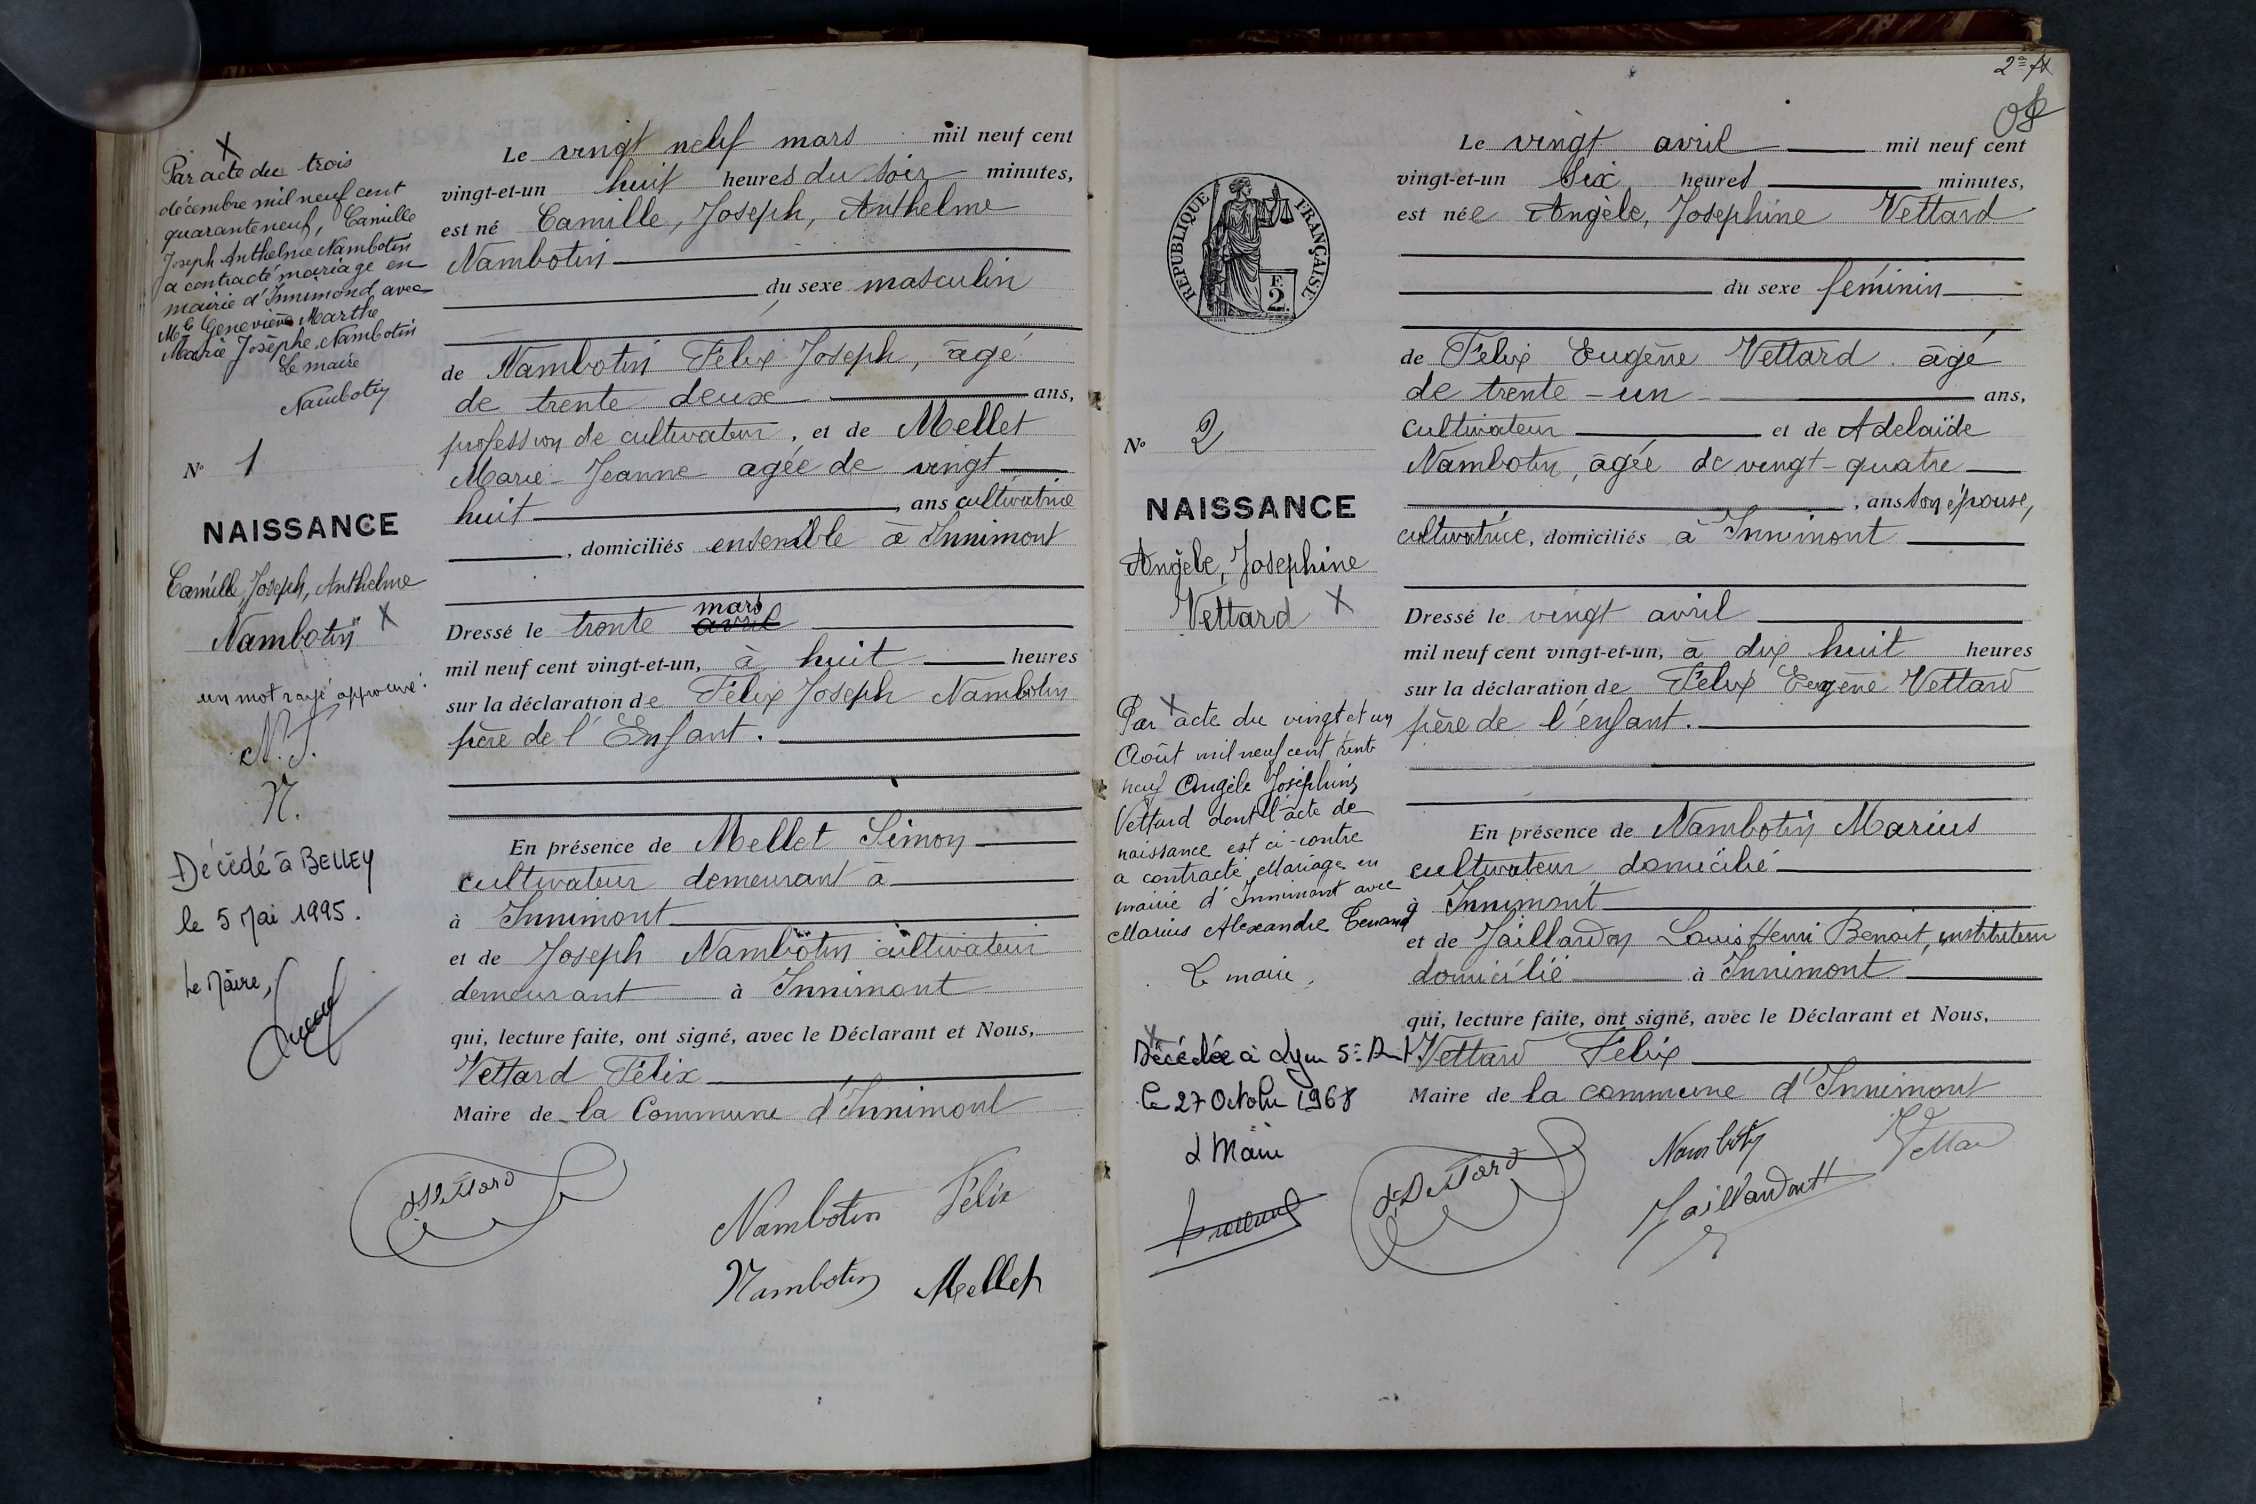 X
Par acte du trois
décembre mil neuf cent
quarante neuf, Camille
Joseph Anthelme Nambotin
a contracté mariage en
mairie d'Innimond avec
Mlle Geneviève Marthe
Marie Josèphe Nambotin
Le maire
Nambotin
N° 1
NAISSANCE
Camille, Joseph, Anthelme
Nambotin X
un mot rayé approuvé.
N.J.
N.
Décédé à BELLEY
le 5 Mai 1995.
Le Maire,
Le vingt neuf mars mil neuf cent
vingt-et-un huit heures du soir minutes,
est né Camille, Joseph, Anthelme
Nambotin
du sexe masculin
de Nambotin Félix Joseph, âgé
de trente deux ans,
profession de cultivateur, et de Mellet
Marie-Jeanne agée de vingt
huit, ans cultivatrice
, domiciliés ensemble à Innimont
mars
Dressé le trente avril
mil neuf cent vingt-et-un, à huit heures
sur la déclaration de Félix Joseph Nambotin
père de l'Enfant.
En présence de Mellet Simon
cultivateur demeurant à
à Innimont
et de Joseph Nambotin cultivateur
demeurant à Innimont
qui, lecture faite, ont signé, avec le Déclarant et Nous,
Vettard Félix
Maire de la Commune d'Innimont
Vettard
Nambotin Félix
Nambotin Mellet
2e
RÉPUBLIQUE FRANÇAISE
F.
2
N° 2
NAISSANCE
Angèle, Josephine
Vettard X
X
Par acte du vingt et un
Août mil neuf cent trente
neuf Angèle Joséphine
Vettard dont l'acte de
naissance est ci-contre
a contracté Mariage en
mairie d'Innimont avec
Marius Alexandre
Le maire,
X
Décédée à Lyon 5e
le 27 Octobre 1968
Le Maire
Le vingt avril mil neuf cent
vingt-et-un six heures minutes,
est née Angèle, Josephine Vettard
du sexe féminin
de Félix Eugène Vettard âgé
de trente-un ans,
cultivateur et de Adelaïde
Nambotin, âgée de vingt-quatre
, ans son épouse,
cultivatrice, domiciliés à Innimont
Dressé le vingt avril
mil neuf cent vingt-et-un, à dix huit heures
sur la déclaration de Félix Eugène Vettard
père de l'enfant.
En présence de Nambotin Marius
cultivateur domicilié
à Innimont
et de Jaillardon Louis Henri Benoit, instituteur
domicilié à Innimont
qui, lecture faite, ont signé, avec le Déclarant et Nous,
Vettard Félix
Maire de la commune d'Innimont
Vettard
Nambotin